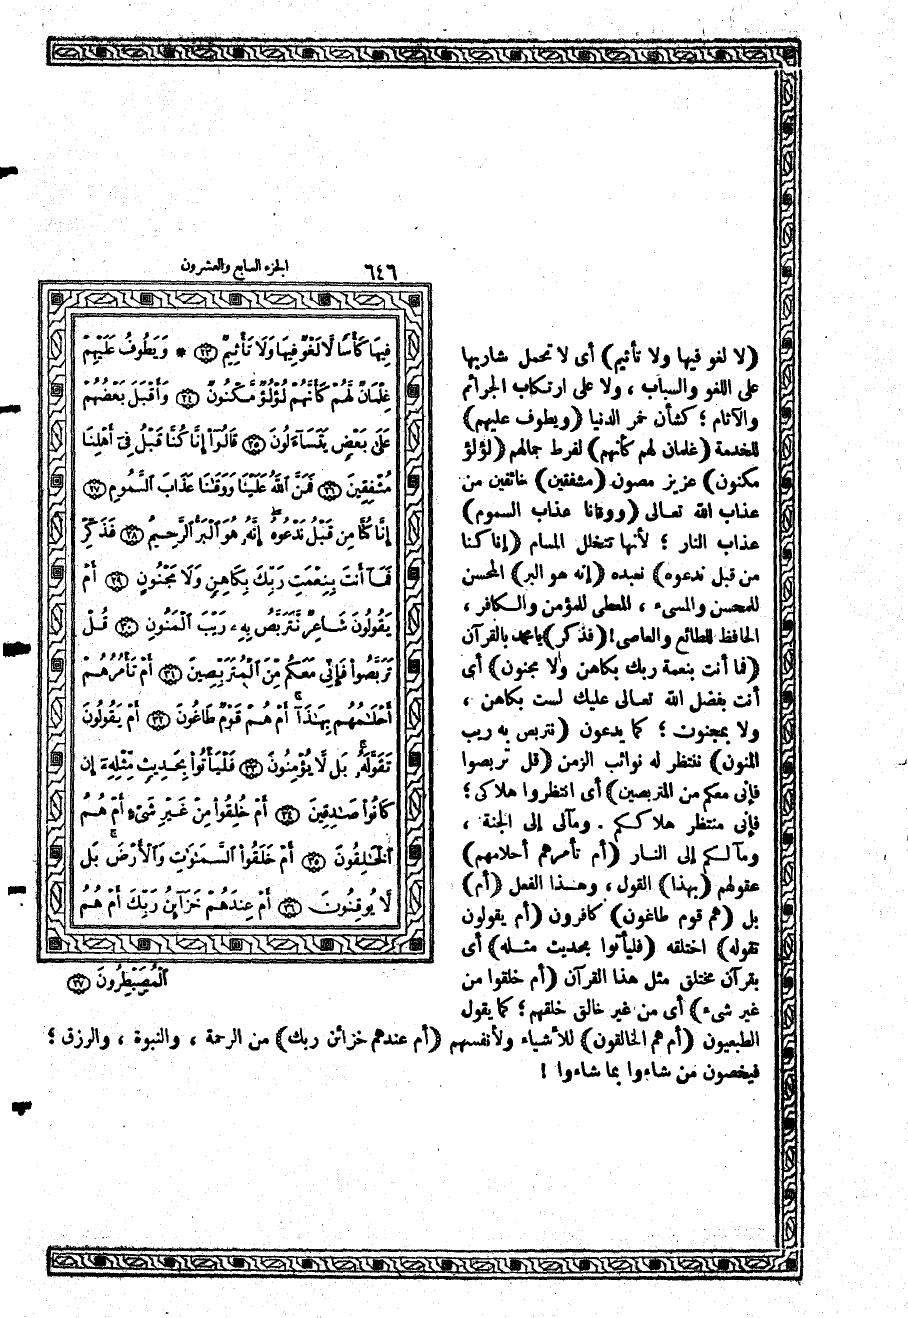 ٦٤٦ الجزء السابع والعشرون
فِيهَا كَأْسًا لَّا لَغْوٌ فِيهَا وَلَا تَأْثِيمٌ ﴿٢٣﴾ * وَيَطُوفُ عَلَيْهِمْ
غِلْمَانٌ لَّهُمْ كَأَنَّهُمْ لُؤْلُؤٌ مَّكْنُونٌ ﴿٢٤﴾ وَأَقْبَلَ بَعْضُهُمْ
عَلَىٰ بَعْضٍ يَتَسَآءَلُونَ ﴿٢٥﴾ قَالُوٓا۟ إِنَّا كُنَّا قَبْلُ فِىٓ أَهْلِنَا
مُشْفِقِينَ ﴿٢٦﴾ فَمَنَّ ٱللَّهُ عَلَيْنَا وَوَقَىٰنَا عَذَابَ ٱلسَّمُومِ ﴿٢٧﴾
إِنَّا كُنَّا مِن قَبْلُ نَدْعُوهُ إِنَّهُۥ هُوَ ٱلْبَرُّ ٱلرَّحِيمُ ﴿٢٨﴾ فَذَكِّرْ
فَمَآ أَنتَ بِنِعْمَتِ رَبِّكَ بِكَاهِنٍ وَلَا مَجْنُونٍ ﴿٢٩﴾ أَمْ
يَقُولُونَ شَاعِرٌ نَّتَرَبَّصُ بِهِۦ رَيْبَ ٱلْمَنُونِ ﴿٣٠﴾ قُلْ
تَرَبَّصُوا۟ فَإِنِّى مَعَكُم مِّنَ ٱلْمُتَرَبِّصِينَ ﴿٣١﴾ أَمْ تَأْمُرُهُمْ
أَحْلَـٰمُهُم بِهَـٰذَآ أَمْ هُمْ قَوْمٌ طَاغُونَ ﴿٣٢﴾ أَمْ يَقُولُونَ
تَقَوَّلَهُۥ بَل لَّا يُؤْمِنُونَ ﴿٣٣﴾ فَلْيَأْتُوا۟ بِحَدِيثٍ مِّثْلِهِۦٓ إِن
كَانُوا۟ صَـٰدِقِينَ ﴿٣٤﴾ أَمْ خُلِقُوا۟ مِنْ غَيْرِ شَىْءٍ أَمْ هُمُ
ٱلْخَـٰلِقُونَ ﴿٣٥﴾ أَمْ خَلَقُوا۟ ٱلسَّمَـٰوَٰتِ وَٱلْأَرْضَ بَل
لَّا يُوقِنُونَ ﴿٣٦﴾ أَمْ عِندَهُمْ خَزَآئِنُ رَبِّكَ أَمْ هُمُ
ٱلْمُصَۜيْطِرُونَ ﴿٣٧﴾
(لا لغو فيها ولا تأثيم) أى لا تحمل شاربها
على اللغو والسباب ، ولا على ارتكاب الجرائم
والآثام ؛ كشأن خمر الدنيا (ويطوف عليهم)
للخدمة (غلمان لهم كأنهم) لفرط جمالهم (لؤلؤ
مكنون) عزيز مصون (مشفقين) خائفين من
عذاب الله تعالى (ووقانا عذاب السموم)
عذاب النار ؛ لأنها تتخلل المسام (إنا كنا
من قبل ندعوه) نعبده (إنه هو البر) المحسن
للمحسن والمسىء ، المعطى للمؤمن والكافر ،
الحافظ للطائع والعاصى! (فذكر) يامحمد بالقرآن
(فما أنت بنعمة ربك بكاهن ولا مجنون) أى
أنت بفضل الله تعالى عليك لست بكاهن ،
ولا بمجنون ؛ كما يدعون (نتربص به ريب
المنون) ننتظر له نوائب الزمن (قل تربصوا
فإنى معكم من المتربصين) أى انتظروا هلاكى ؛
فإنى منتظر هلاككم . ومآلى إلى الجنة ،
ومآلكم إلى النار (أم تأمرهم أحلامهم)
عقولهم (بهذا) القول ، وهذا الفعل (أم)
بل (هم قوم طاغون) كافرون (أم يقولون
تقوله) اختلقه (فليأتوا بحديث مثله) أى
بقرآن مختلق مثل هذا القرآن (أم خلقوا من
غير شىء) أى من غير خالق خلقهم ؛ كما يقول
الطبعيون (أم هم الخالقون) للأشياء ولأنفسهم (أم عندهم خزائن ربك) من الرحمة ، والنبوة ، والرزق ؛
فيخصون من شاءوا بما شاءوا !